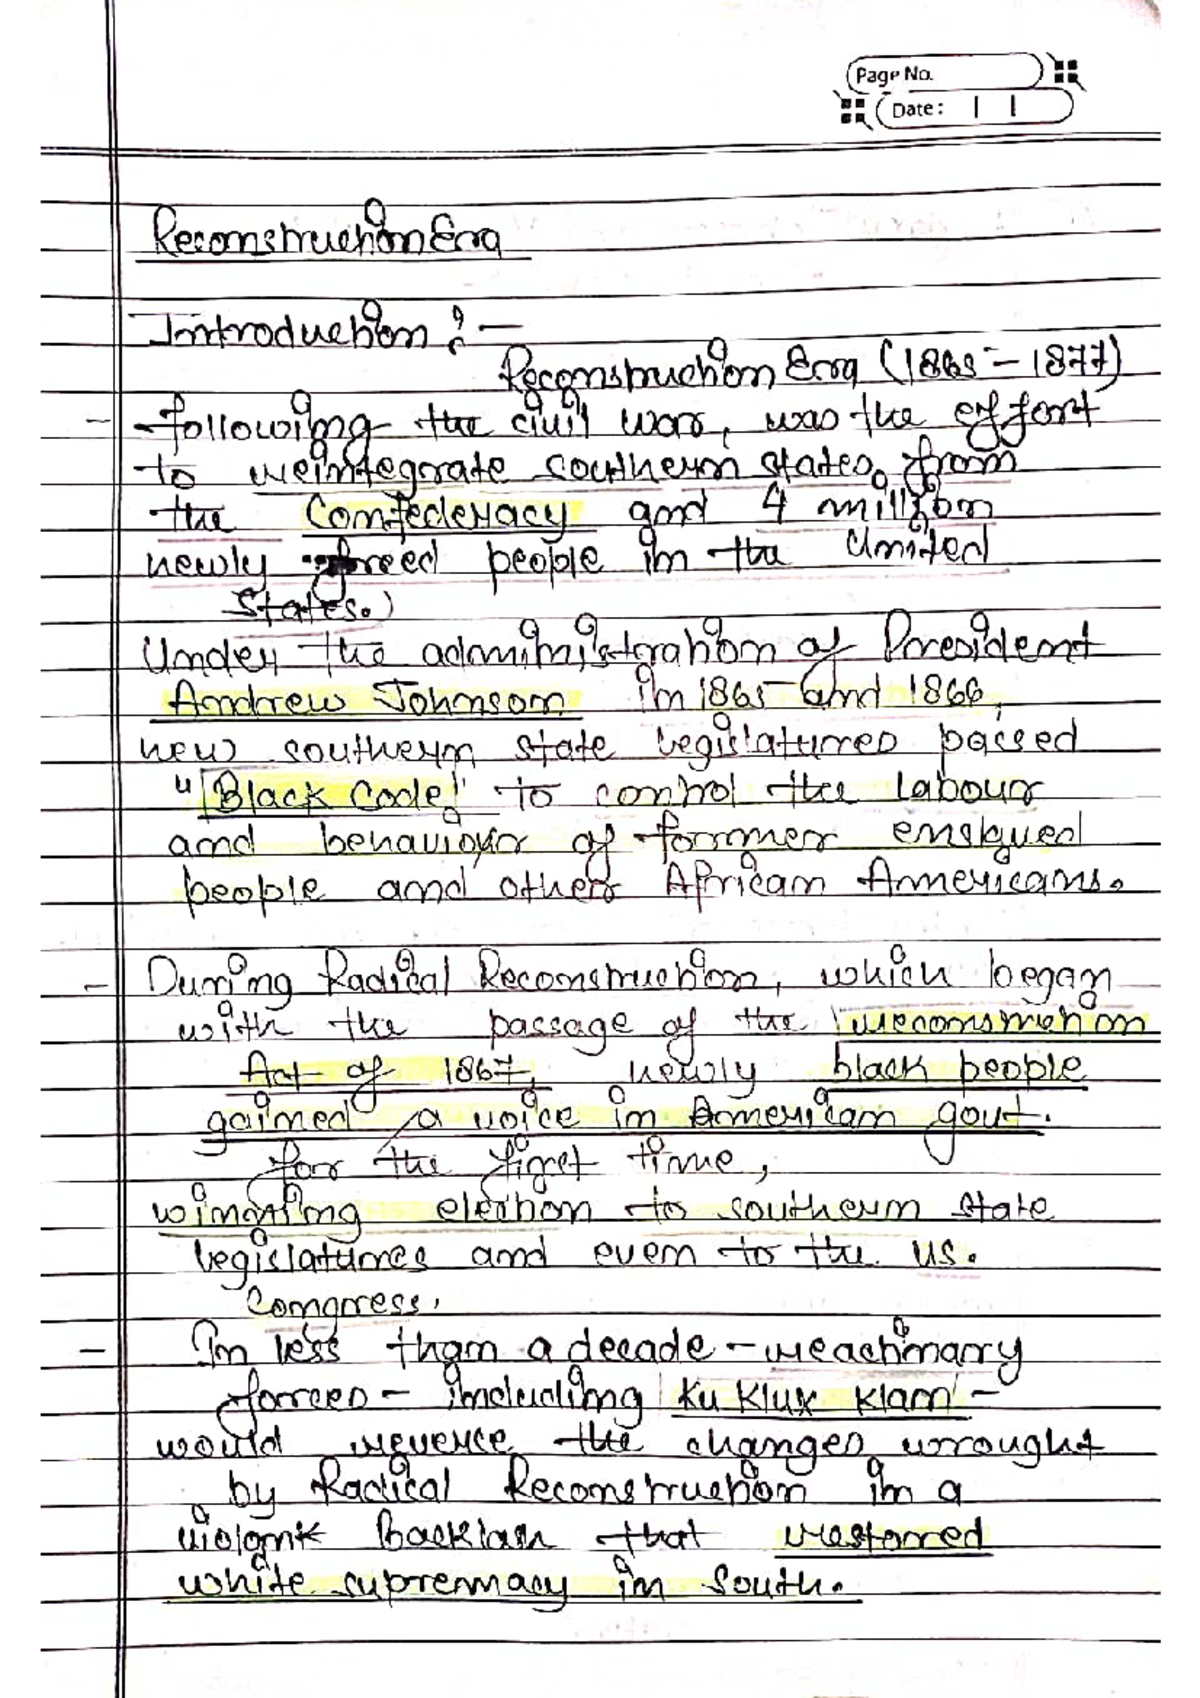 Page No.
Date: | |
Reconstruction Era
Introduction :-
Reconstruction Era (1865 - 1877)
- following the civil war, was the effort
to reintegrate southern states from
the Confederacy and 4 million
newly freed people in the United
States.)
Under the administration of President
Andrew Johnson in 1865 and 1866,
new southern state legislatures passed
"Black Code" to control the labour
and behaviour of former enslaved
people and other African Americans.
- During Radical Reconstruction, which began
with the passage of the reconstruction
Act of 1867, newly black people
gained a voice in American govt.
for the first time,
winning election to southern state
legislatures and even to the US.
Congress.
- In less than a decade - reactinary
forces - including Ku Klux Klan -
would reverse the changes wrought
by Radical Reconstruction in a
violent Backlash that restored
white supremacy in South.